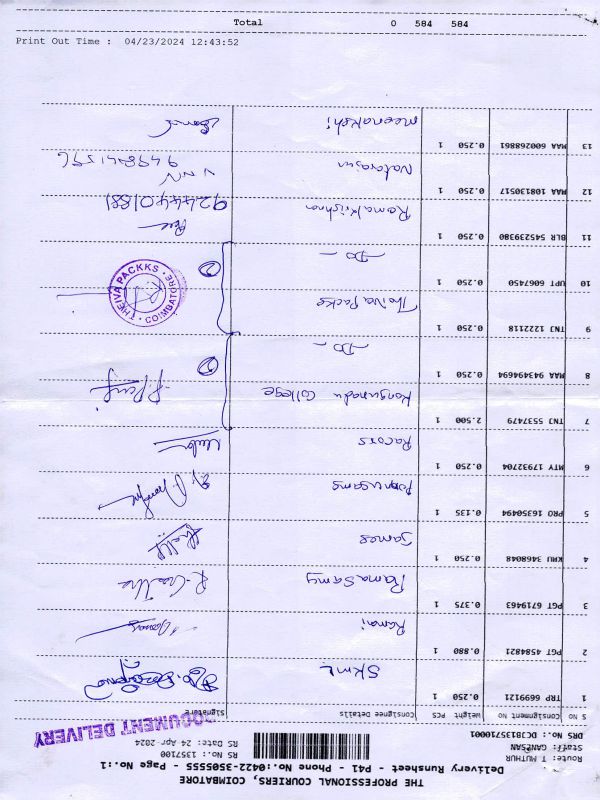 THE PROFESSIONAL COURIERS, COIMBATORE
Delivery Runsheet - P41 - Phone No.:0422-3505555 - Page No.:1
Route: T MUTHUR
Staff: GANESAN
DRS No.: DC3183571 0001
RS No.: 1357100
RS Date: 24-Apr-2024
DOCUMENT DELIVERY
S NO Consignment NO Weight PCS Consignee Details Signature
1 TRP 6699121 0.250 1 SKML
2 PGT 4584821 0.880 1 Ramani
3 PGT 6719463 0.375 1 Rama Samy
4 KMU 3468048 0.250 1 James
5 PRO 16350494 0.135 1
6 MTY 17932704 0.250 1 Racors
7 TNJ 5537479 2.500 1 Kongunadu College
8 MAA 94349694 0.250 1 — Do — 2
9 TNJ 1222118 0.250 1 Theiva Packs
10 UPT 6067450 0.250 1 — Do — 2
THEIVA PACKKS COIMBATORE
11 BLR 545239380 0.250 1 Rama Krishnan 9244401881
12 MAA 108130517 0.250 1 Natarajan
13 MAA 600268861 0.250 1 Meenakshi
Print Out Time : 04/23/2024 12:43:52
Total 0 584 584